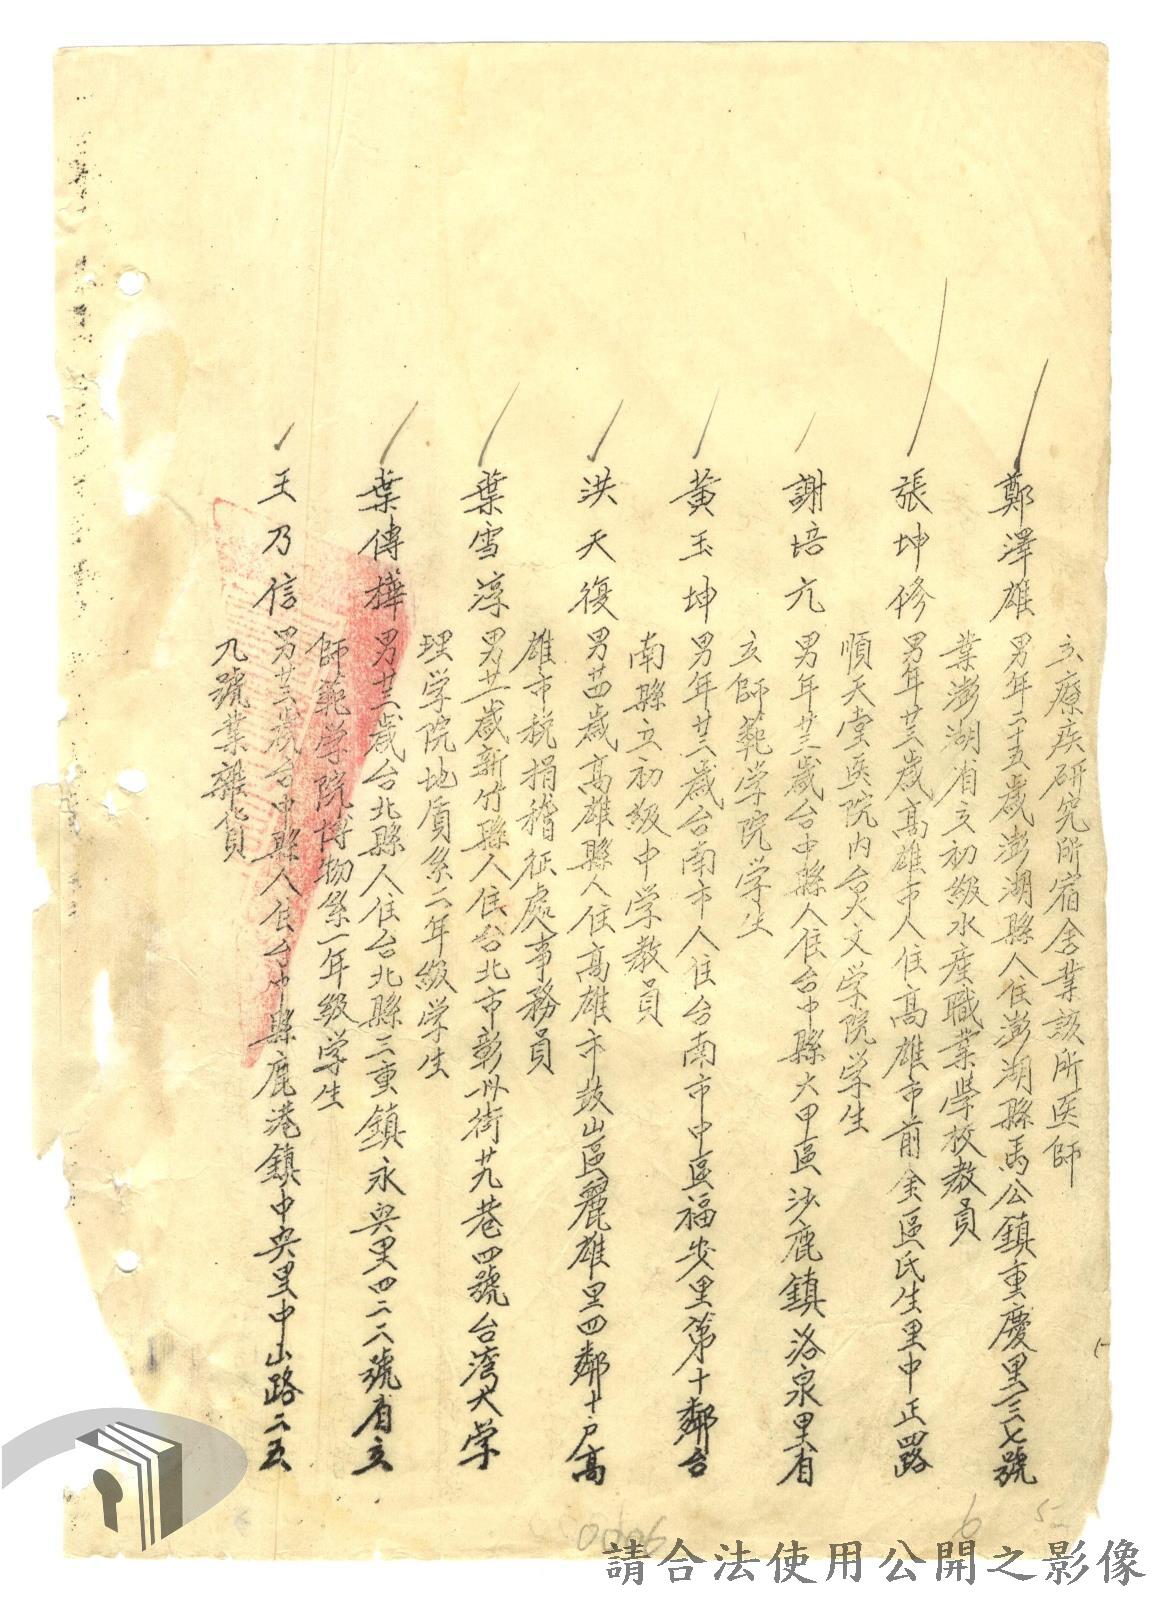 立療疾研究所宿舍業該所医師
鄭澤雄 男年二十五歲澎湖縣人住澎湖縣馬公鎮重慶里三七號
業澎湖省立初級水產職業學校教員
張坤修 男年廿三歲高雄市人住高雄市前金區民生里中正四路
順天堂医院內台大文学院学生
謝培元 男年廿三歲台中縣人住台中縣大甲區沙鹿鎮洛泉里省
立師範学院学生
黃玉坤 男年廿三歲台南市人住台南市中區福安里第十鄰台
南縣立初級中学教員
洪天復 男廿四歲高雄縣人住高雄市鼓山區麗雄里四鄰十戶高
雄市稅捐稽征處事務員
葉雪淳 男廿二歲新竹縣人住台北市彰化街廿九巷四號台灣大学
理学院地質系二年級学生
葉傳樺 男廿三歲台北縣人住台北縣三重鎮永興里四二八號省立
師範学院博物系一年級学生
王乃信 男廿三歲台中縣人住台中縣鹿港鎮中央里中山路二五
九號業雜貨
6
5
請合法使用公開之影像